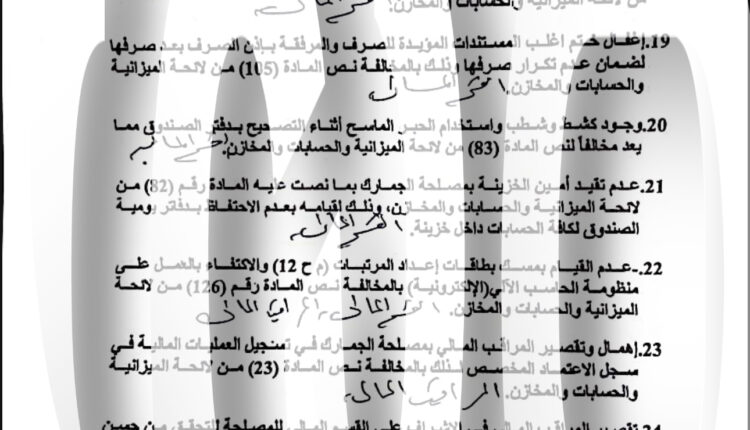 من لائحة الميزانية والحسابات والمخازن.
19.إغفال ختم اغلب المستندات المؤيدة للصرف والمرفقة بإذن الصرف بعد صرفها
لضمان عدم تكرار صرفها وذلك بالمخالفة نص المادة (105) من لائحة الميزانية
والحسابات والمخازن.
20.وجود كشط وشطب واستخدام الحبر الماسح أثناء التصحيح بدفتر الصندوق مما
يعد مخالفاً لنص المادة (83) من لائحة الميزانية والحسابات والمخازن.
21.عدم تقيد أمين الخزينة بمصلحة الجمارك بما نصت عليه المادة رقم (82) من
لائحة الميزانية والحسابات والمخازن، وذلك لقيامه بعدم الاحتفاظ بدفاتر يومية
الصندوق لكافة الحسابات داخل خزينة.
22.-عدم القيام بمسك بطاقات إعداد المرتبات (م ح 12) والاكتفاء بالعمل على
منظومة الحاسب الآلي(الإلكترونية) بالمخالفة نص المادة رقم (126) من لائحة
الميزانية والحسابات والمخازن.
23.إهمال وتقصير المراقب المالي بمصلحة الجمارك في تسجيل العمليات المالية في
سجل الاعتماد المخصص لذلك بالمخالفة نص المادة (23) من لائحة الميزانية
والحسابات والمخازن. المراقب المالي
24.تقصير المراقب المالي في الاشراف على القسم المالي للمصلحة للتحقق من حسن